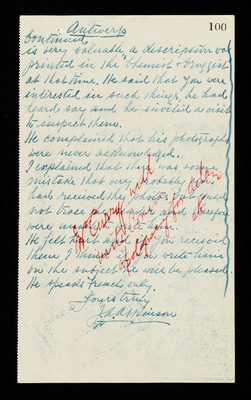 Antwerp
100
Continued
is very valuable, a description was
printed in the "Chemist & Druggist"
at that time. He said that you were
interested in such things, he had
heard so and he invited a visit
to inspect them.
He complained that his photographs
were never acknowledged.
I explained that there was some
mistake that you probably
had received the photos but
not trace the sender and therefore
were unable to
He felt hurt but if you received
them I think if you wrote him
on the subject he will be pleased.
He speaks french only.
Yours truly
Mr Curry will
write
apology for delay